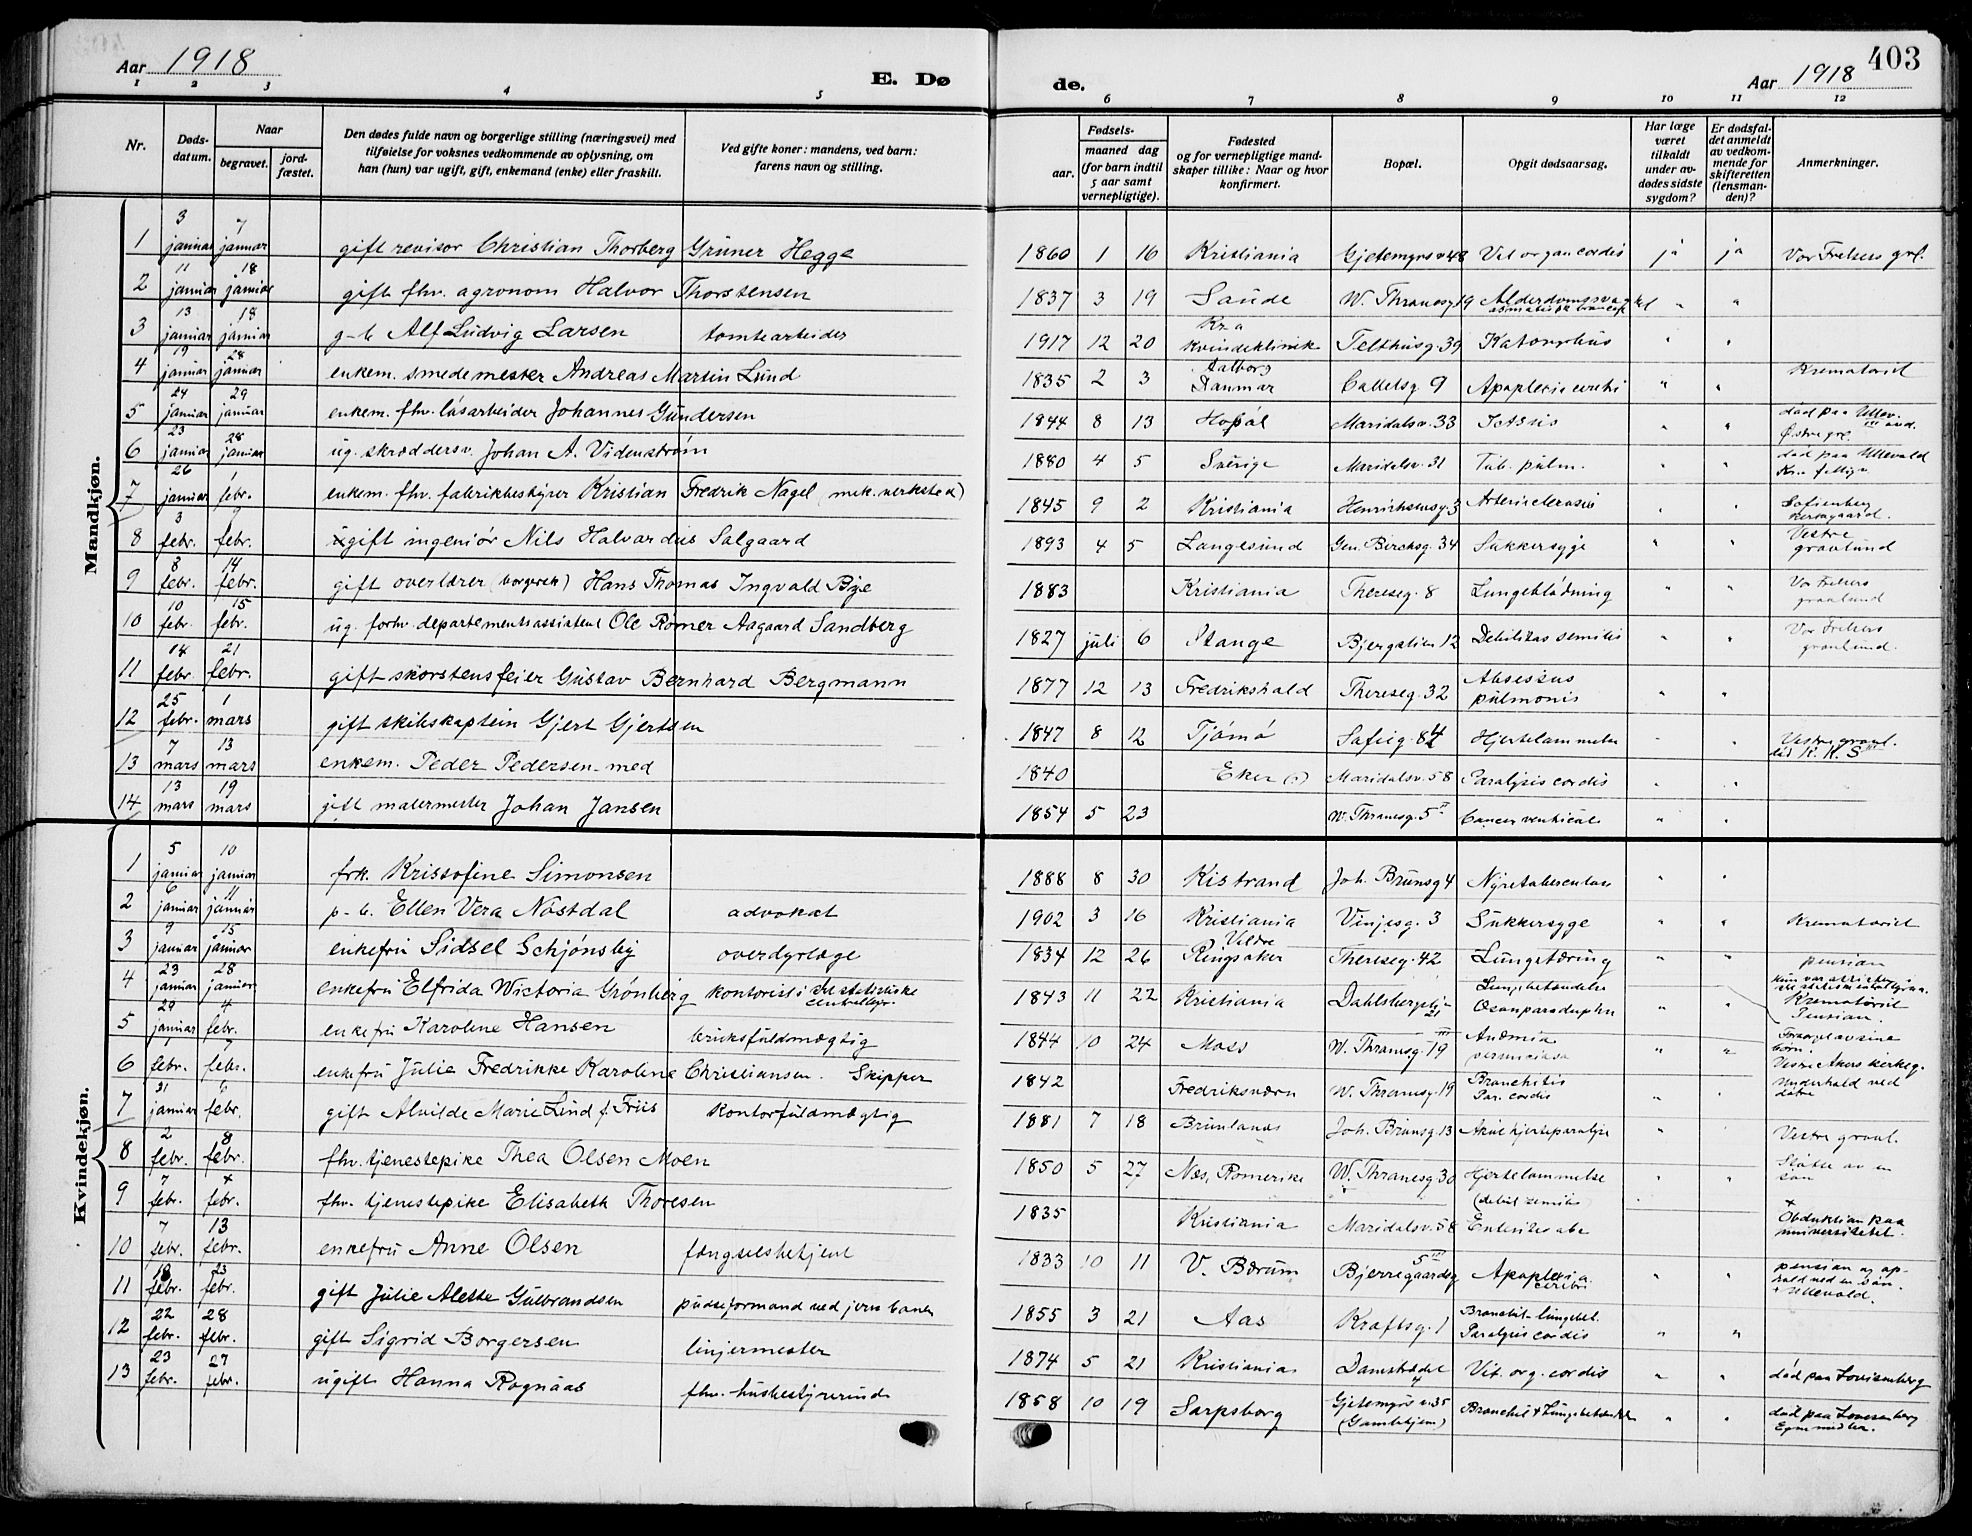 Aar 1918
E. Dø
de.
Aar 1918
403
1 2 3 4 5 6 7 8 9 10 11 12
Nr.
Døds-
datum.
Naar
begravet.
jord-
fæstet.
Den dødes fulde navn og borgerlige stilling (næringsvei) med
tilføielse for voksnes vedkommende av oplysning, om
han (hun) var ugift, gift, enkemand (enke) eller fraskilt.
Ved gifte koner: mandens, ved barn:
farens navn og stilling.
Fødsels-
aar.
maaned dag
(for barn indtil
5 aar samt
vernepligtige).
Fødested
og for vernepligtige mand-
skaper tillike: Naar og hvor
konfirmert.
Bopæl.
Opgit dødsaarsag.
Har læge
været
tilkaldt
under av-
dødes sidste
sygdom?
Er dødsfal-
det anmeldt
av vedkom-
mende for
skifteretten
(lensman-
den)?
Anmerkninger.
Mandkjøn.
1 3 januar 7 januar gift revisor Christian Thorberg Grüner Hegge 1860 1 16 Kristiania Gjetemyrsv 48 Vit organ cordis ja ja Vor Frelsers grl.
2 11 januar 18 januar gift fhv. agronom Halvor Thorstensen 1837 3 19 Saude W. Thranesg 19 " "
3 13 januar 18 januar g-b Alf Ludvig Larsen tomtearbeider 1917 12 20 Kra Kvindeklinik Telthusg. 39 " "
4 19 januar 28 januar enkem. smedemester Andreas Martin Lund 1835 2 3 Aalborg Danmar Colletsg 9 Apoplexia cerebri " " Krematoriet
5 24 januar 29 januar enkem. fhv. løsarbeider Johannes Gundersen 1844 8 13 Maridalsv. 33 " " død paa Ullev. III avd. Østre grl.
6 23 januar 28 januar ug. skræddersv. Johan A. Videnstrøm 1880 4 5 Sverige Maridalsv. 31 Tub. pulm. " " død paa Ullevald
7 26 januar 1 febr. enkem. fhv. fabrikbestyrer Kristian Fredrik Nagel (mek. verksted) 1845 9 2 Kristiania Henrichsensg. 3 " " Sofienberg kirkegaard.
8 3 febr. 9 febr. ugift ingeniør Nils Halvardus Salgaard 1893 4 5 Langesund Gen. Birchsg. 34 Sukkersyge " " Vestre gravlund
9 8 febr. 14 febr. gift overlærer (borgersk) Hans Thomas Ingvald Bye 1883 Kristiania Thereseg. 8 Lungeblødning " " Vor Frelsers gravlund
10 10 febr. 15 febr. ug. forhv. departementsassistent Ole Rømer Aagaard Sandberg 1827 juli 6 Stange Bjergalien 12 Debilitas senilis " " Vor Frelsers gravlund.
11 14 febr. 21 febr. gift skorstensfeier Gustav Bernhard Bergmann 1877 12 13 Fredrikshald Thereseg. 32 Absessus pulmonis " "
12 25 febr. 1 mars gift skibskaptein Gjert Gjertsen 1847 8 12 Tjømø Sofieg. Hjertelammelse " " Vestre gravl.
13 7 mars 13 mars enkem. Peder Pedersen-med 1840 Eker Maridalsv. 58 Paralysis cordis " "
14 13 mars 19 mars gift malermester Johan Jansen 1854 5 23 W. Thranesg. 5 II Cancer ventriculi " "
Kvindekjøn.
1 5 januar 10 januar frk. Krissofine Simonsen 1888 8 30 Kistrand Joh. Brunsg 4 Nyretuberculose " "
2 6 januar 11 januar p-b. Ellen Vera Nøstdal advokat 1902 3 16 Kristiania Vinjesg. 3 Sukkersyge " " Krematoriet
3 9 januar 15 januar enkefru Sidsel Schjønsby overdyrlæge 1834 12 26 Veldre Ringsaker Thereseg. 42 Lungetæring " " pension
4 23 januar 28 januar enkefru Elfrida Wictoria Grønberg kontorist i det statistiske centralbyr. 1843 11 22 Kristiania Dahlsbergstj. 21 " " Krematoriet Pension.
5 29 januar 4 febr. enkefru Karoline Hansen bruksfuldmægtig 1844 10 24 Moss W. Thranesg. 19 III Anæmia perniciosa " " Forsørget av sine børn.
6 febr. 7 febr. enkefru Julie Fredrikke Karoline Christiansen. Skipper 1842 Fredriksværn W. Thranesg. 19 Bronchitis Par. cordis " " Vestre Akers kirkeg. Underhold ved døtre
7 31 januar febr. gift Alvilde Marie Lind f. Friis kontorfuldmægtig 1881 7 18 Brunlanes Joh. Brunsg. 13 Akut hjerteparalyse " " Vestre gravl.
8 2 febr. 8 febr. fhv. tjenestepike Thea Olsen Moen 1850 5 27 Næs, Romerike W. Thranesg 30 Hjertelammelse " " Støtte av en søn
9 7 febr. febr. fhv. tjenestepike Elisabeth Thoresen 1835 Kristiania Maridalsv. 58 Obduktion paa universitetet.
10 7 febr. 13 febr. enkefru Anne Olsen fængselsbetjent 1833 10 11 V. Bærum Bjerregaardsg 5 IV Apoplexia cerebri " "
11 18 febr. 23 febr. gift Julie Alette Gulbrandsen pudseformand ved jernbanen 1855 3 21 Aas Kraftsg. 1 Paralysis cordis " "
12 22 febr. 28 febr. gift Sigrid Borgersen linjermester 1874 5 21 Kristiania Damstrædet Vit. org. cordis " " død paa Lovisenberg
13 23 febr. 27 febr. ugift Hanna Rognaas fhv. husbestyrerinde 1858 10 19 Sarpsborg Gjetemyrsv. 35 (Gamlehjem) " " død paa Lovisenberg Egne midler.